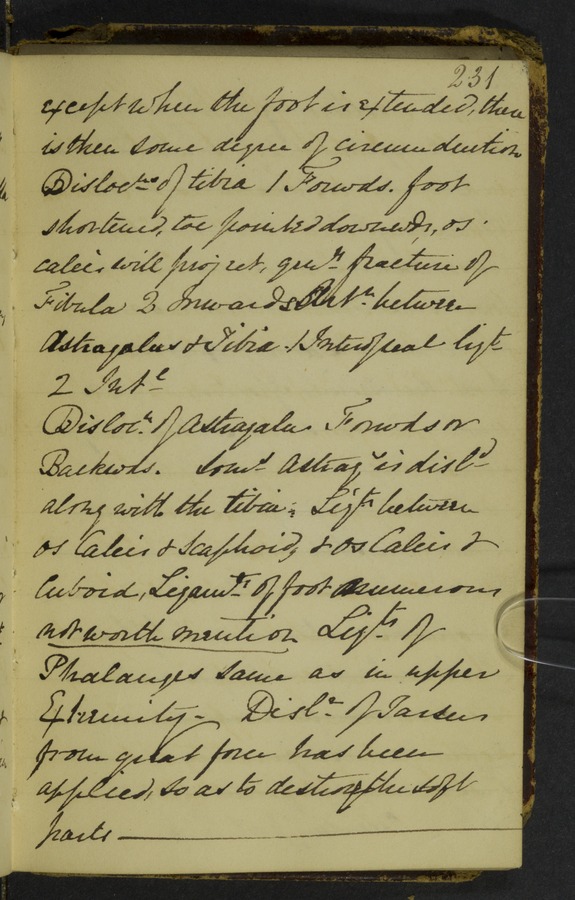 231
except when the foot is extended, there
is then some degree of circumduction
Disloctns of tibia 1 Forwds. foot
shortened, toe pointed downwds, os
calcis will project, genly fracture of
Fibula 2 Inwards Artn between
Astragalus & Tibia. 1 Interosseal ligt
2 Intl
Islocn of Astragalus Forwds or
Backwds. Somt Astragls is disld
along with the tibia; Ligts between
os Calcis & Scaphoid, & os Calcis &
Cuboid, Ligamts of foot numerous
not worth mention Ligts of
Phalanges same as in upper
Extremity - Disln of Tarsus
from great force has been
applied, so as to destroy the soft
parts